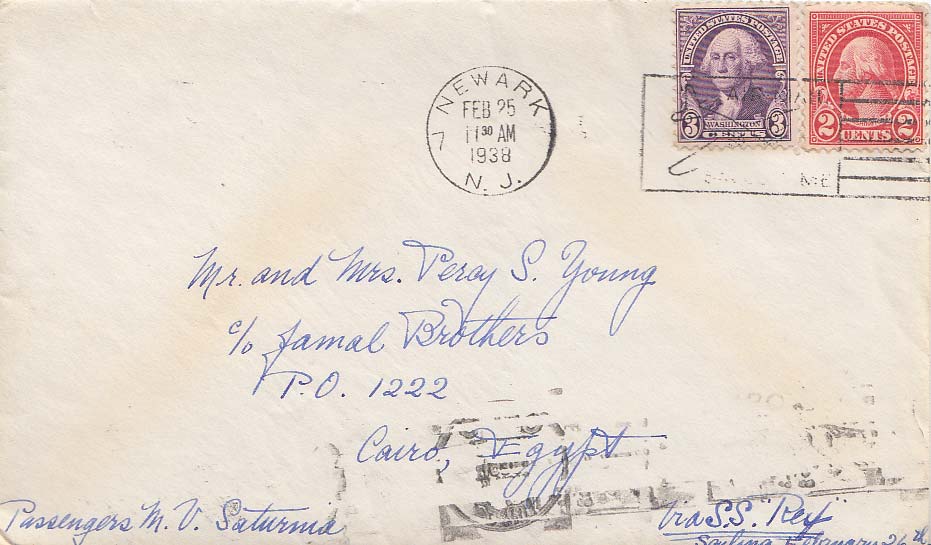 UNITED STATES POSTAGE
WASHINGTON
3 CENTS 3
UNITED STATES POSTAGE
2 CENTS 2
NEWARK
7
FEB 25
11 30 AM
1938
N. J.
ME
Mr. and Mrs. Percy S. Young
c/o Jamal Brothers
P.O. 1222
Cairo, Egypt
Passengers M. V. Saturnia
via S.S. "Rex"
Sailing February 26th